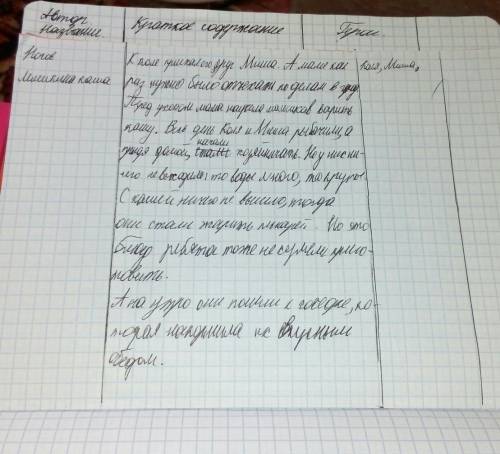 Автор Название
Краткое содержание
Герои
Носов
Мишкина каша
К Коле приехал его друг Миша. А маме как
раз нужно было отъехать по делам в
Перед уходом мама научила мальчиков варить
кашу. Весь день Коля и Миша рыбачили, а
придя домой, начали хозяйничать. Но у них ни-
чего не выходило: то воды много, то крупы
С кашей ничего не вышло, тогда
они стали жарить пескарей. Но это
блюдо ребята тоже не сумели приго-
товить.
А на утро они пошли к соседке, ко-
торая накормила их вкусным
обедом.
Коля, Миша,